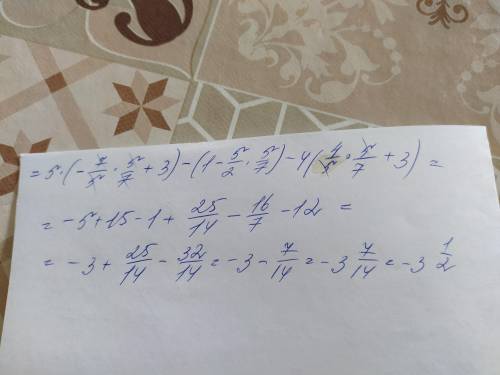 = 5·(-7/5·5/7+3)-(1-5/2·5/7)-4(4/5·5/7+3) =
= -5+15-1+25/14-16/7-12 =
= -3+25/14-32/14=-3-7/14=-3 7/14=-3 1/2